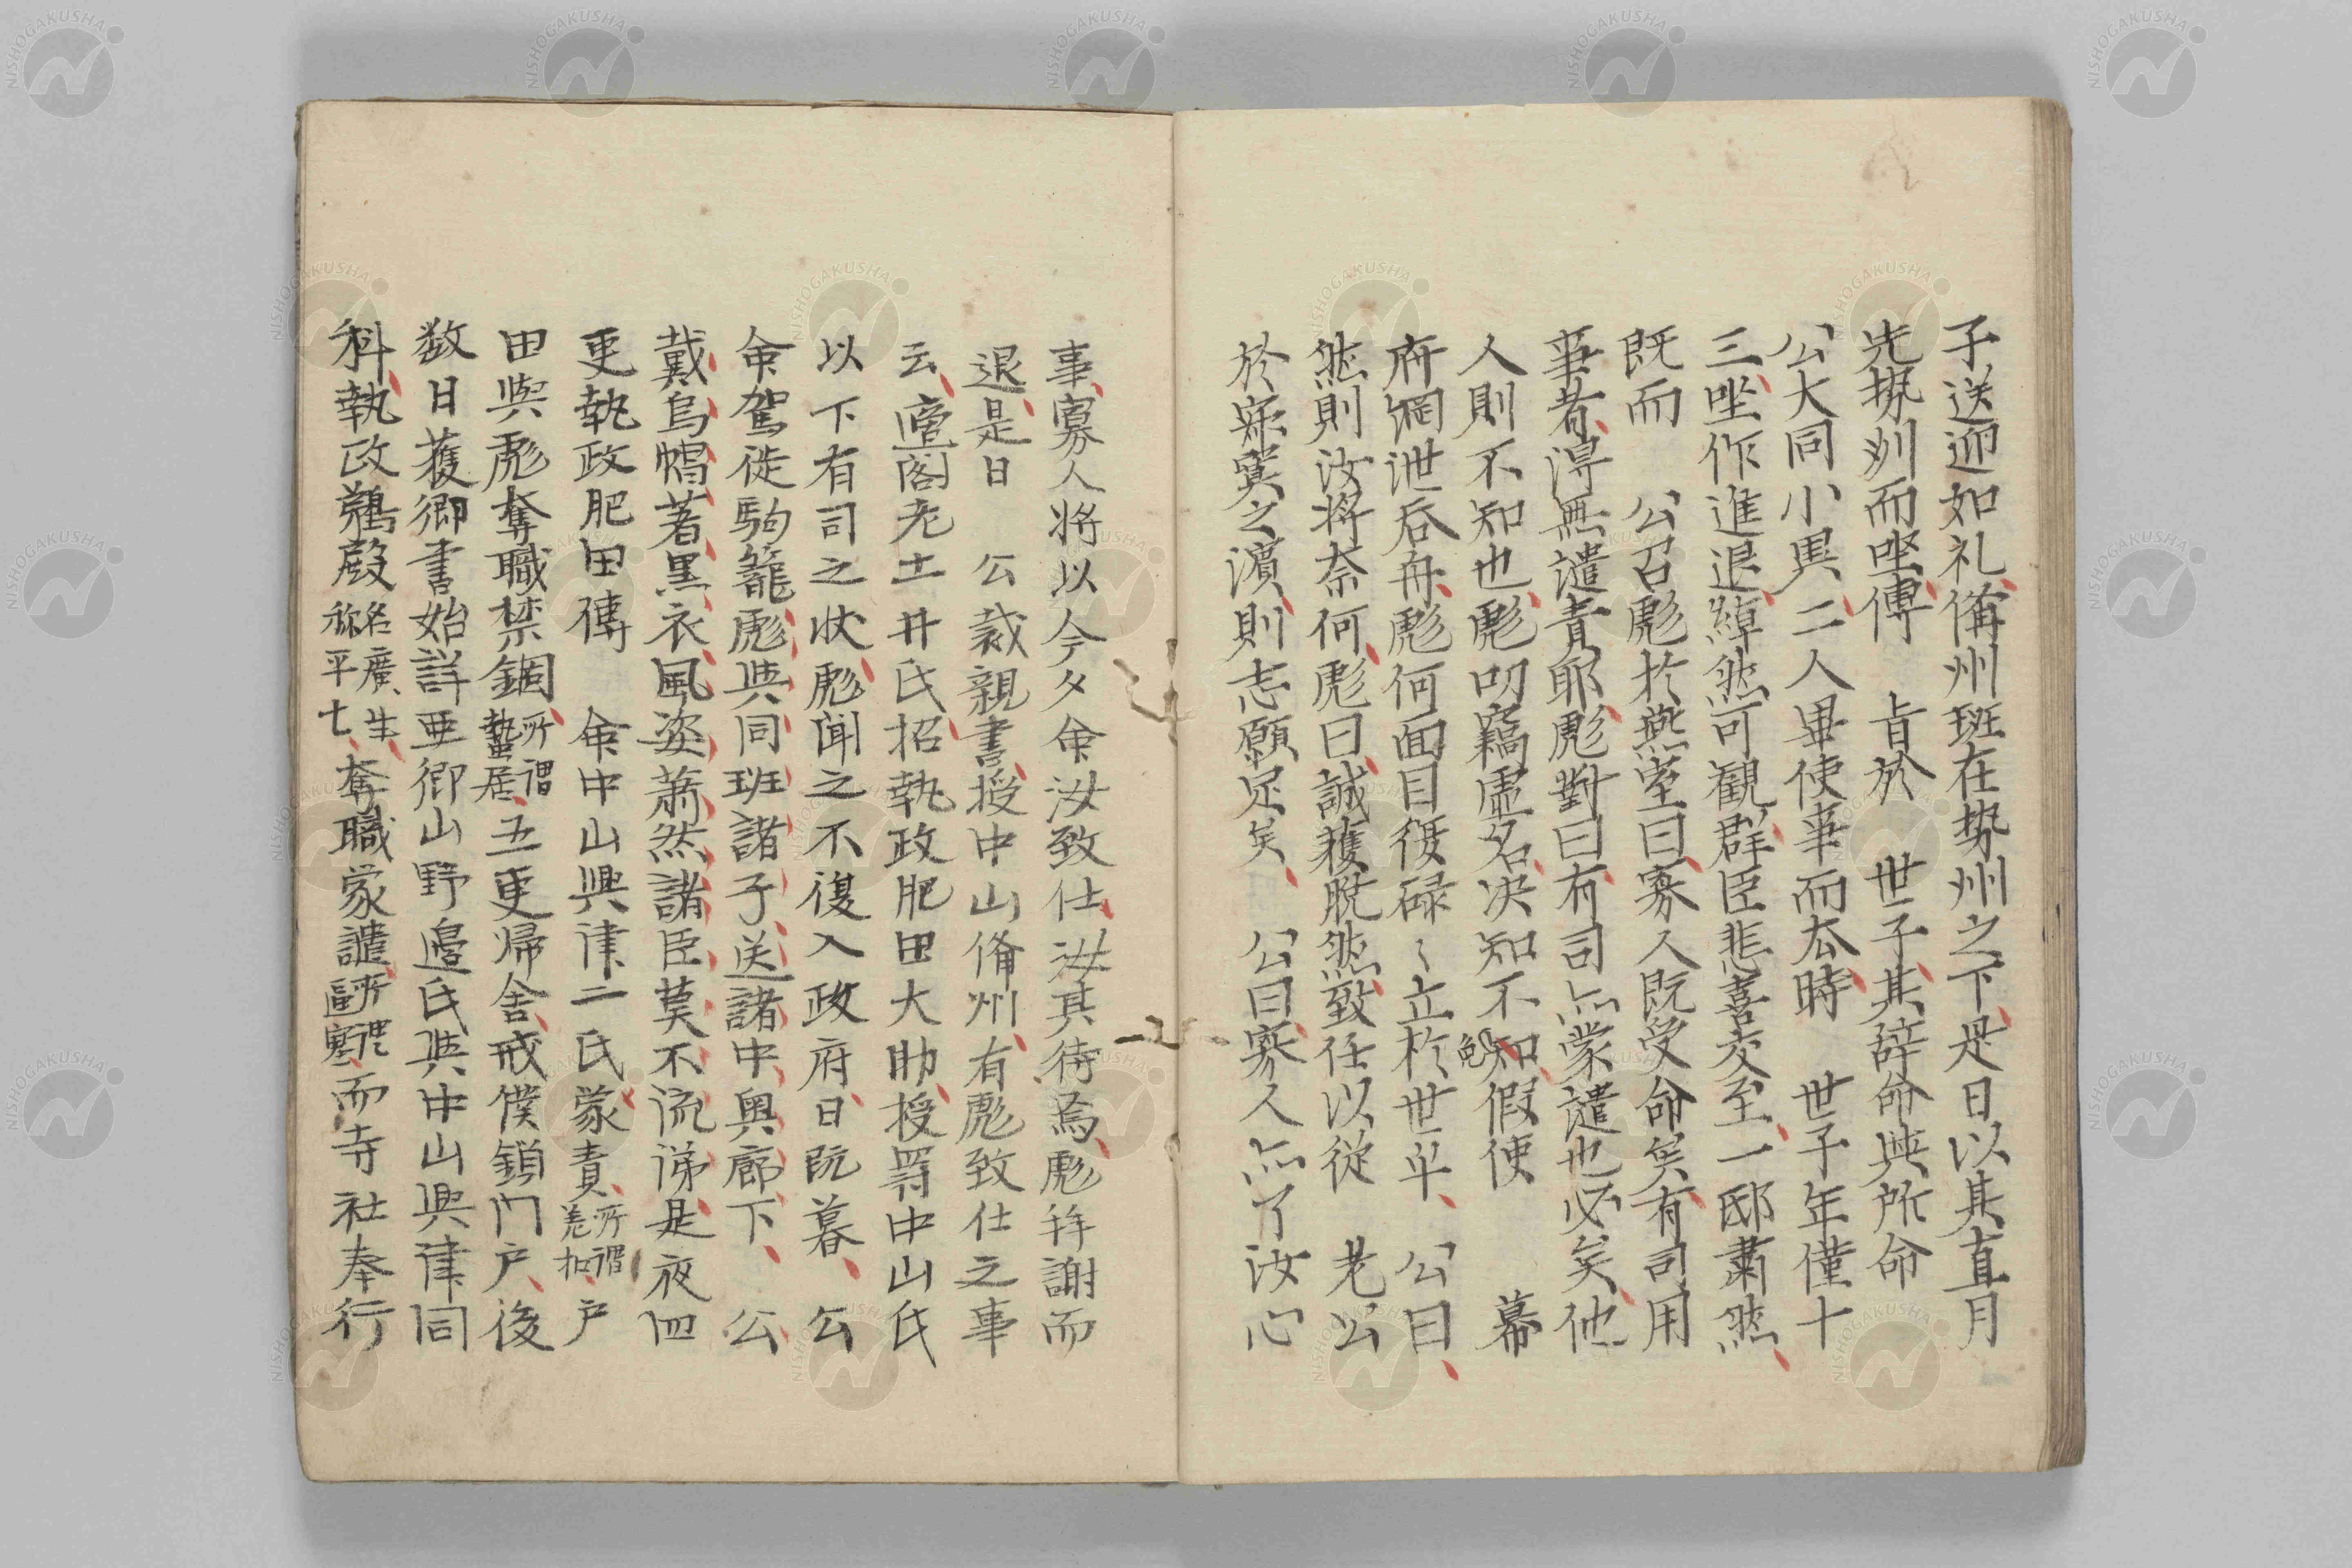 子送迎如礼備州班在勢州之下是日以其直月
先勢州而坐傳　旨於　世子其辞命與所命
公大同小異二人畢使事而厺時　世子年僅十
三坐作進退綽然可観群臣悲喜交至一邸粛然
既而　公召彪於燕室曰寡人既受命矣有司用
事者得無譴責耶彪對曰有司亦蒙譴也必矣他
人則不知也彪叨竊虚名决知不免假使　幕
府網泄吞舟彪何面目復碌〻立於世乎　公曰
然則汝将奈何彪曰誠獲脱然致仕以從　老公
於寂寞之濱則志願足矣　公曰寡人亦了汝心
事寡人将以今夕命汝致仕汝其待焉彪拜謝而
退是日　公裁親書授中山備州有彪致仕之事
云適閣老土井氏招執政肥田大助授罸中山氏
以下有司之状彪聞之不復入政府日既暮　公
命駕徙駒籠彪與同班諸子送諸中奥廊下　公
戴烏帽著黒衣風姿蕭然諸臣莫不流涕是夜四
更執政肥田傳　命中山興津二氏蒙責所謂差扣戸
田與彪奪職禁錮所謂蟄居五更帰舎戒僕鎖门戸後
数日獲郷書始詳亜卿山野邉氏與中山興津同
科執政鵜殿名廣生称平七奪職蒙譴所謂逼塞而寺社奉行
NISHOGAKUSHA